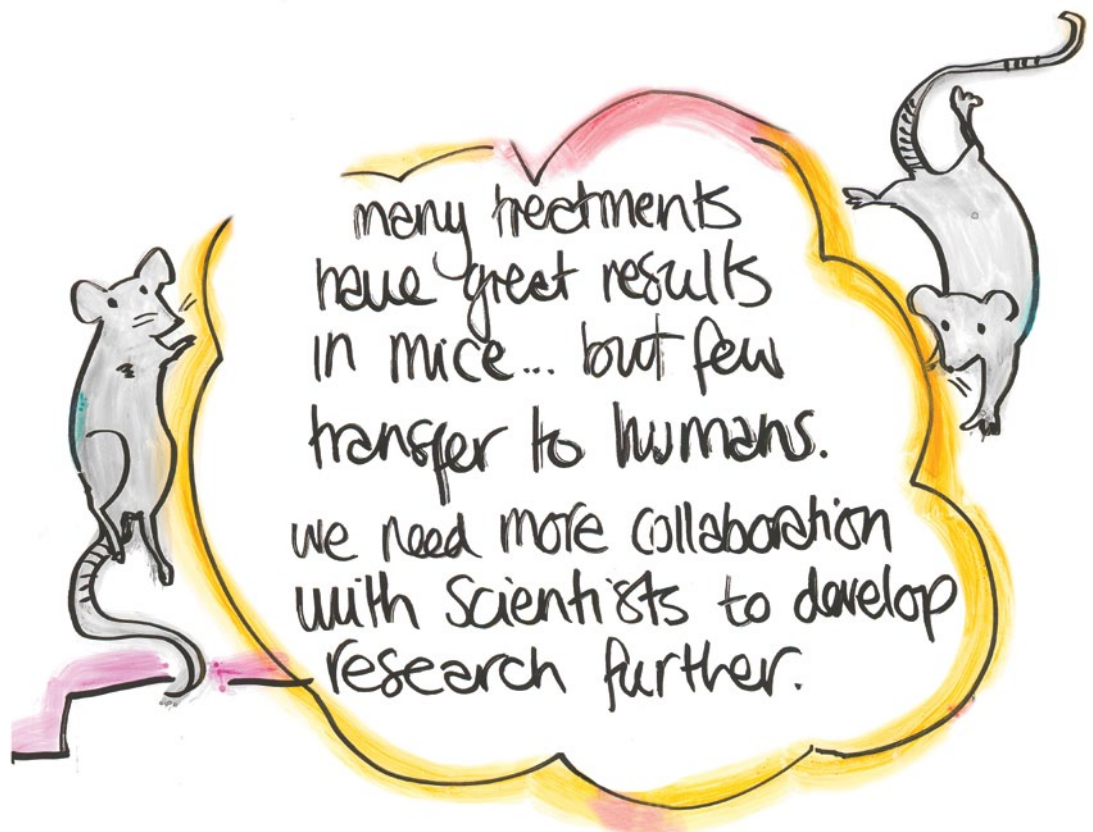 many treatments
have great results
in mice... but few
transfer to humans.
we need more collaboration
with scientists to develop
research further.